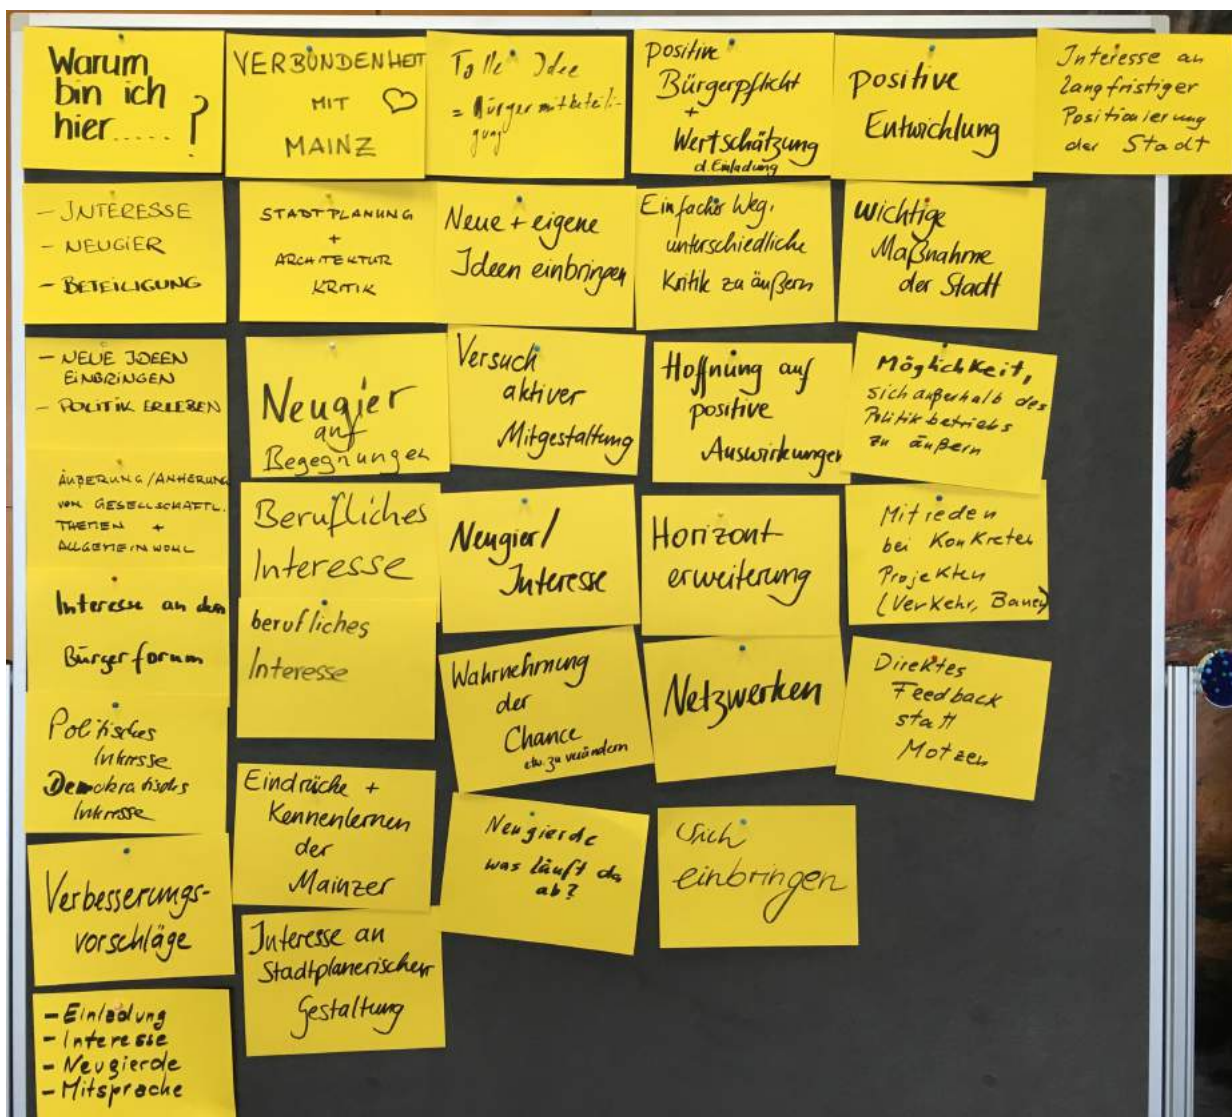 Warum
bin ich
hier..... ?
- INTERESSE
- NEUGIER
- BETEILIGUNG
- NEUE IDEEN
EINBRINGEN
- POLITIK ERLEBEN
ÄUßERUNG/ANHERUNG
VON GESELLSCHAFTL.
THEMEN +
ALLGEMEINWOHL
Interesse an dem
Bürgerforum
Politisches
Interesse
Demokratisches
Interesse
Verbesserungs-
vorschläge
- Einladung
- Interesse
- Neugierde
- Mitsprache
VERBUNDENHEIT
MIT ♡
MAINZ
STADTPLANUNG
+
ARCHITEKTUR
KRITIK
Neugier
auf
Begegnungen
Berufliches
Interesse
berufliches
Interesse
Eindrücke +
Kennenlernen
der
Mainzer
Interesse an
Stadtplanerischer
Gestaltung
Tolle Idee
= Bürgermitbeteili-
gung
Neue + eigene
Ideen einbringen
Versuch
aktiver
Mitgestaltung
Neugier/
Interesse
Wahrnehmung
der
Chance
etw. zu verändern
Neugierde
was läuft da
ab?
positive
Bürgerpflicht
+
Wertschätzung
d. Einladung
Einfacher Weg,
unterschiedliche
Kritik zu äußern
Hoffnung auf
positive
Auswirkungen
Horizont-
erweiterung
Netzwerken
Sich
einbringen
positive
Entwicklung
wichtige
Maßnahme
der Stadt
Möglichkeit,
sich außerhalb des
Politikbetriebs
zu äußern
Mitreden
bei Konkreten
Projekten
(Verkehr, Bauen)
Direktes
Feedback
statt
Motzen
Interesse an
langfristiger
Positionierung
der Stadt